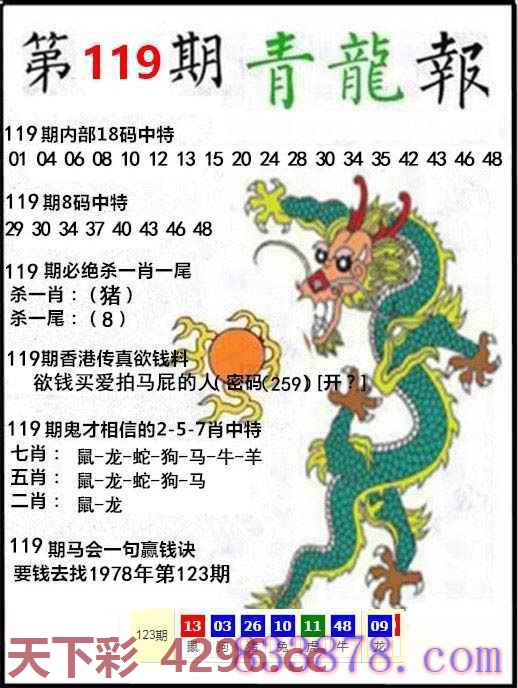 第119期青龍報
119期内部18码中特
01 04 06 08 10 12 13 15 20 24 28 30 34 35 42 43 46 48
119期8码中特
29 30 34 37 40 43 46 48
119期必绝杀一肖一尾
杀一肖：（猪）
杀一尾：（8）
119期香港传真欲钱料
欲钱买爱拍马屁的人（密码(259) [开？]
119期鬼才相信的2-5-7肖中特
七肖： 鼠-龙-蛇-狗-马-牛-羊
五肖： 鼠-龙-蛇-狗-马
二肖： 鼠-龙
119期马会一句赢钱诀
要钱去找1978年第123期
123期 13 03 26 10 11 48 09
鼠 狗 猪 兔 虎 牛 龙
天下彩 4296.cc
878.com